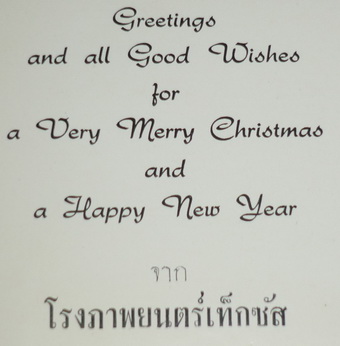 Greetings
and all Good Wishes
for
a Very Merry Christmas
and
a Happy New Year
จาก
โรงภาพยนตร์เท็กซัส